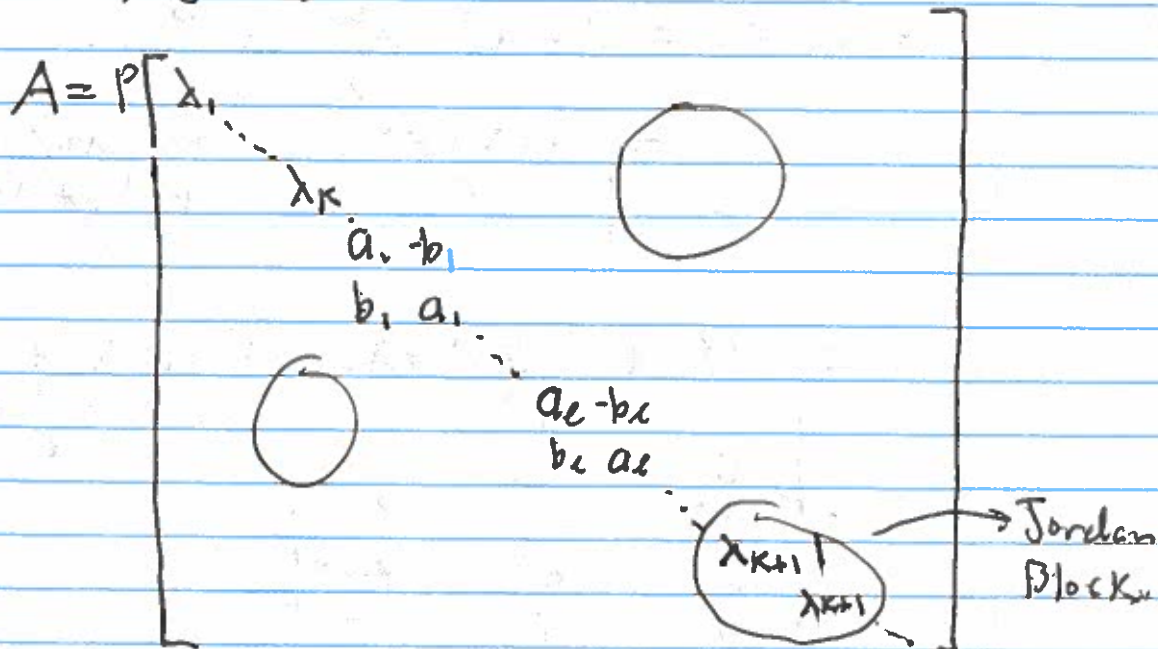 A = P[ λ₁
λₖ
a₁ -b₁
b₁ a₁
aₑ -bₑ
bₑ aₑ
λₖ₊₁ 1
λₖ₊₁
Jordan
Block